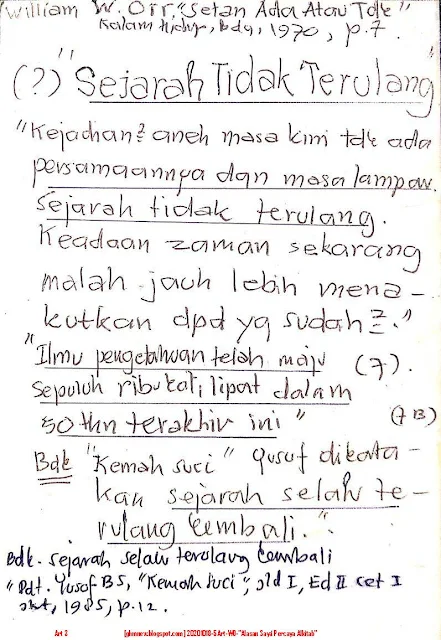 William W. Orr, "Setan Ada Atau Tdk"
Kalam Hidup, bdg, 1970, p.7.
(?) "Sejarah Tidak Terulang"
"Kejadian² aneh masa kini tdk ada
persamaannya dgn masa lampau.
Sejarah tidak terulang.
Keadaan zaman sekarang
malah jauh lebih mena-
kutkan dpd yg sudah²."
"Ilmu pengetahuan telah maju (7).
sepuluh ribu kali lipat dalam
50 thn terakhir ini" (7B)
Bdk "Kemah suci" Yusuf dikata-
kan sejarah selalu te-
rulang kembali.".
Bdk. sejarah selalu terulang kembali
"Pdt. Yusof BS, "Kemah Suci", Jld I, Ed II cet I
okt, 1985, p.12.
Art 3 [glommex.blogspot.com] 20201018-5 Art-WO-"Alasan Saya Percaya Alkitab"